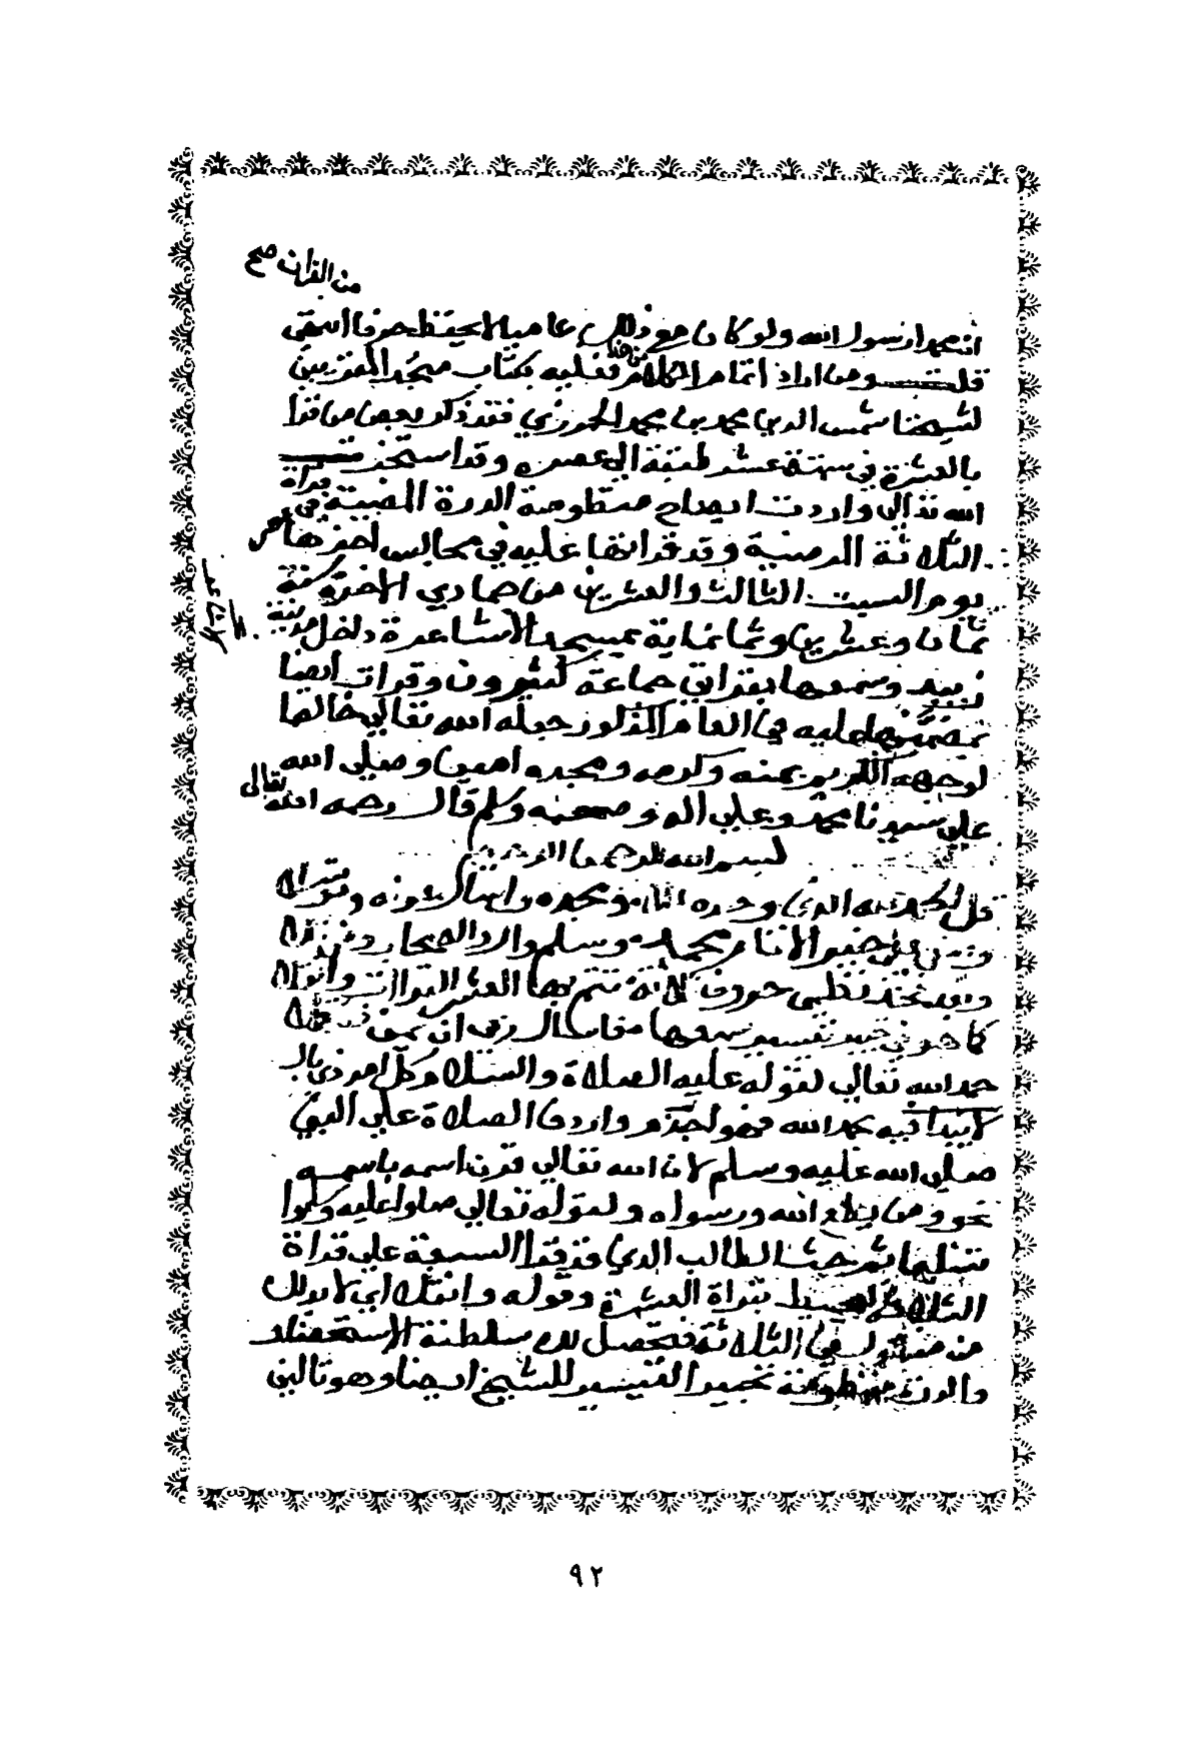 من القران صح
ان محمدا رسول الله ولو كان مع ذلك عاميا لا يحفظ حرفا انتهى
قلت ومن اراد اتمام الكلام فعليه بكتاب منجد المقريين
لشيخنا شمس الدين محمد بن محمد الجزري فقد ذكر بعض من قرا
بالعشرة في ستة عشر طبقة الى عصره وقد استخرت
الله تعالى واردت ايضاح منظومة الدرة المضية في قراة
الثلاثة المرضية وقد قراتها عليه في مجالس اخرها
يوم السبت الثالث والعشرين من جمادي الاخرة سنة
ثمان وعشرين وثمانماية بمسجد الاشاعرة داخل مدينة
زبيد وسمعها بقراتي جماعة كثيرون وقرات ايضا
عليه في العام المذكور جعله الله تعالى خالصا
لوجهه الكريم بمنه وكرمه ومجده امين وصلى الله
على سيدنا محمد وعلى اله وصحبه وسلم قال رحمه الله تعالى
بسم الله الرحمن الرحيم
قل الحمد لله الذي وحده علا ومجده واسال عونه وتوسلا
وصل على خير الانام محمد وسلم وال والصحاب
وبعد فخذ نظمي حروف ثلاثة تتم بها العشر القراات وانقلا
كما هو في تحبير تيسير سبعها فاسال ربي ان يمن
حمد الله تعالى لقوله عليه الصلاة والسلام كل امر ذي بال
لا يبدا فيه بحمد الله فهو اجذم واردف الصلاة على النبي
صلى الله عليه وسلم لان الله تعالى قرن اسمه باسمه
نحو ومن يطع الله ورسوله ولقوله تعالى صلوا عليه وسلموا
تسليما ثم حث الطالب الذي قد قرا السبعة على قراة
الثلاثة ليحيط بقراة العشرة وقوله وانقلا اي لا بد لك
من في الثلاثة فتحصل لك سلطنة الاستحضار
والدرة منظومة تحبير التيسير للشيخ ايضا وهو تاليف
٩٢